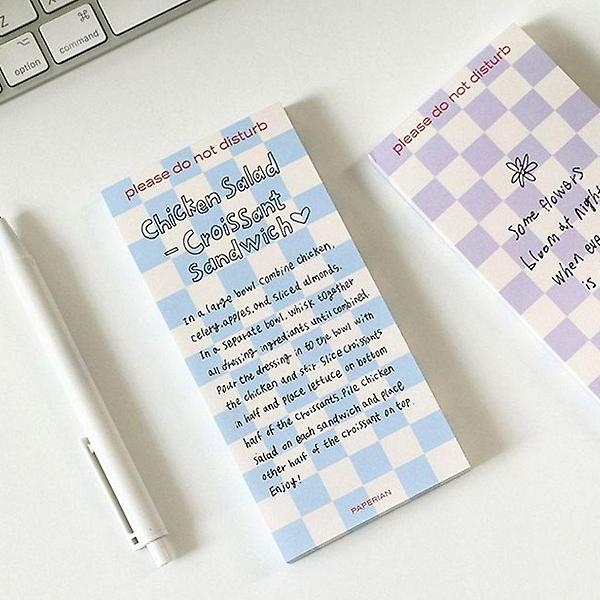 Z
⌘
option
command
please do not disturb
Chicken Salad
- Croissant
sandwich♡
In a large bowl combine chicken,
celery, apples, and sliced almonds.
In a separate bowl, whisk together
all dressing ingrediants until combined
Pour the dressing in to the bowl with
the chicken and stir. Slice Croissants
in half and place lettuce on bottom
half of the croissants. Pile Chicken
salad on each sandwich and place
other half of the croissant on top.
Enjoy!
PAPERIAN
please do not disturb
Some flowers
bloom at night
When
is